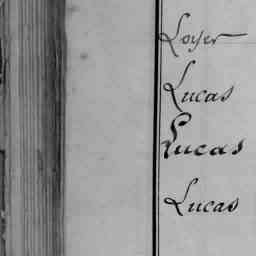 Loyer
Lucas
Lucas
Lucas